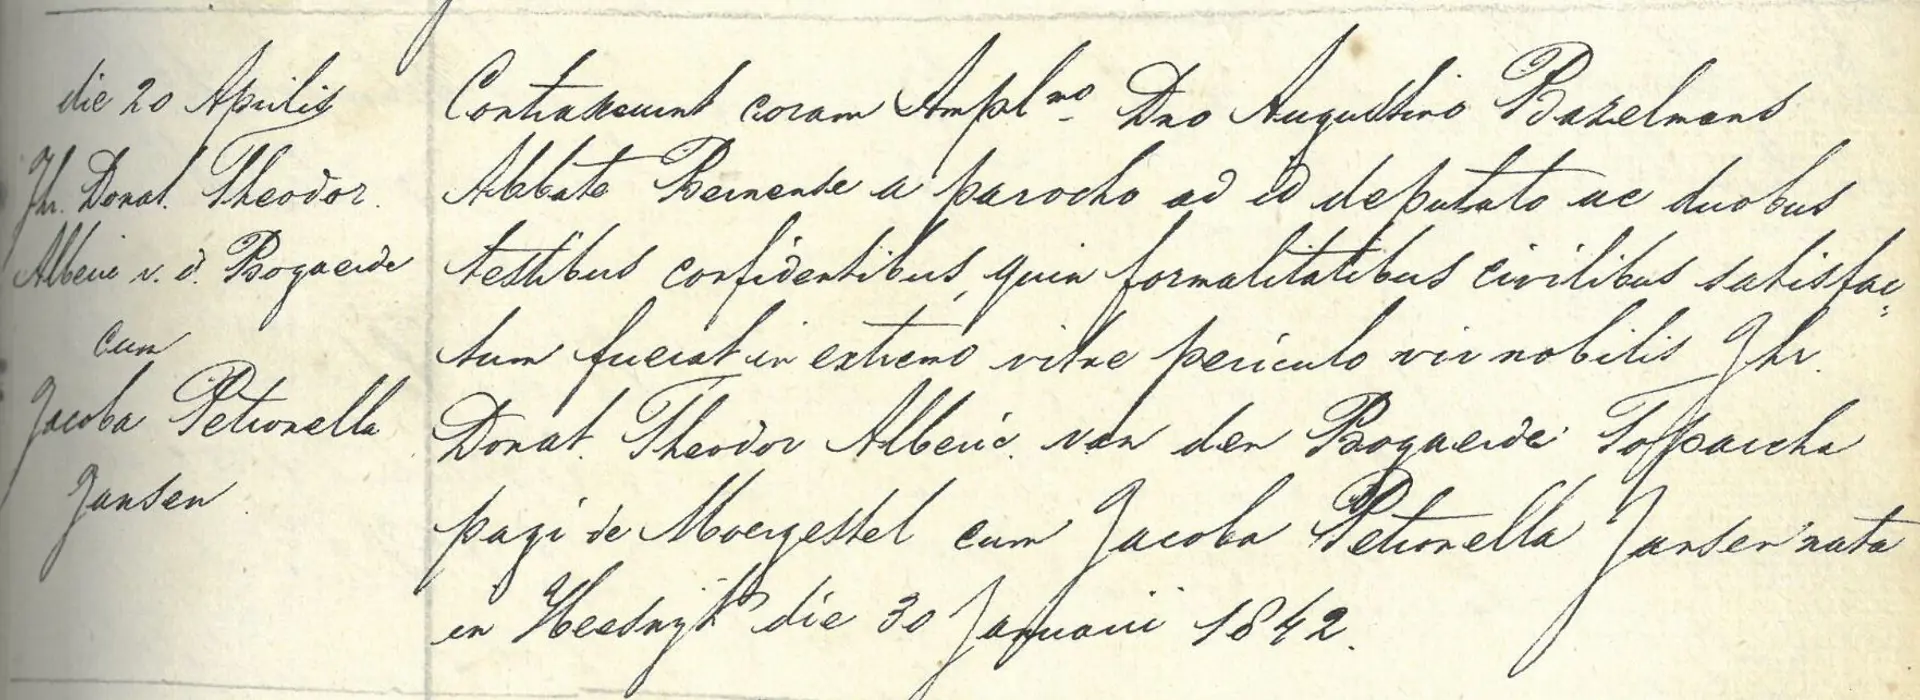 die 20 Aprilis
Jhr. Donat. Theodor.
Alberic v. d. Bogaerde
cum
Jacoba Petronella
Jansen.
Contraxerunt coram Ampl.mo Dno Augustino Bazelmans
Abbate Bernense a parocho ad id deputato ac duobus
testibus confidentibus, quin formalitatibus civilibus satisfac-
tum fuerat in extremo vitae periculo vir nobilis Jhr.
Donat. Theodor Alberic. van den Bogaerde Toparcha
pagi de Moergestel cum Jacoba Petronella Jansen nata
in Heeswijk die 30 Januarii 1842.